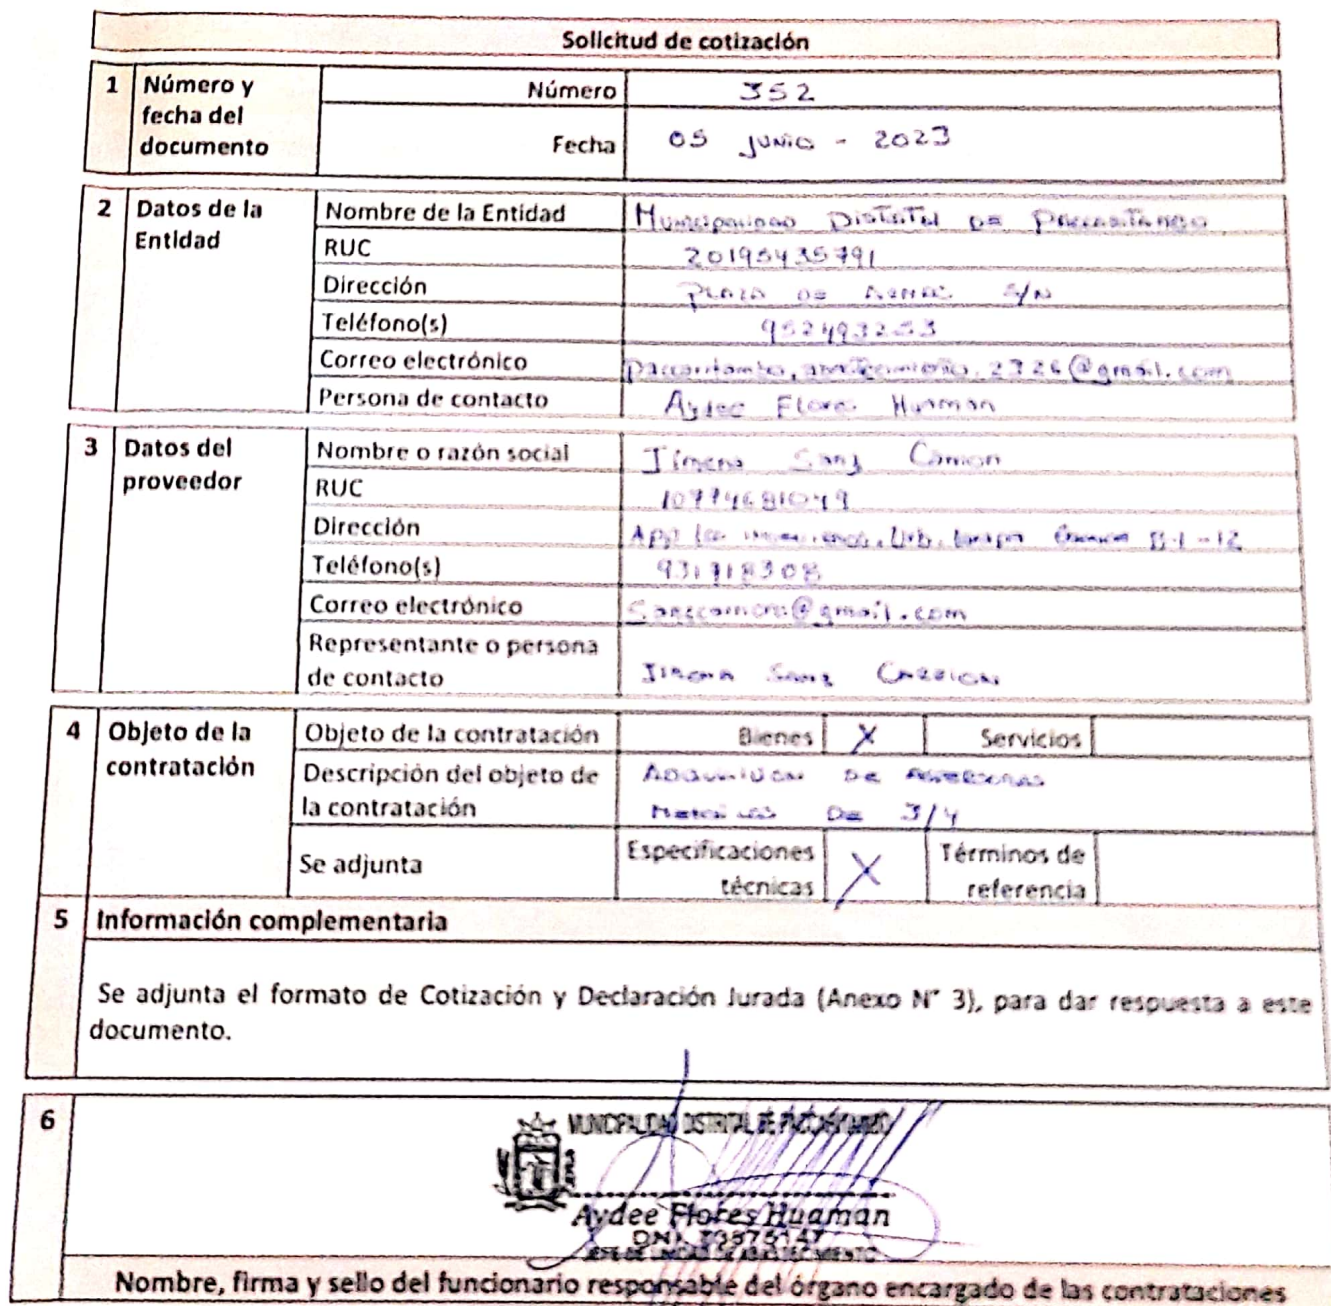 Solicitud de cotización
1 Número y fecha del documento
Número 352
Fecha 05 JUNIO - 2023
2 Datos de la Entidad
Nombre de la Entidad Municipalidad Distrital de Paccaritambo
RUC 20195435791
Dirección PLAZA DE ARMAS S/N
Teléfono(s) 952493253
Correo electrónico @gmail.com
Persona de contacto Aydee Flores Huaman
3 Datos del proveedor
Nombre o razón social Jimena Sanz
RUC 10774681049
Dirección Urb. B-1-12
Teléfono(s) 931918308
Correo electrónico @gmail.com
Representante o persona de contacto JIMENA Sanz CARRION
4 Objeto de la contratación
Objeto de la contratación Bienes X Servicios
Descripción del objeto de la contratación ADQUISICION DE
DE 3/4
Se adjunta Especificaciones técnicas X Términos de referencia
5 Información complementaria
Se adjunta el formato de Cotización y Declaración Jurada (Anexo N° 3), para dar respuesta a este
documento.
6
MUNICIPALIDAD DISTRITAL DE PACCARITAMBO
Aydee Flores Huaman
DNI.
JEFE DE UNIDAD DE ABASTECIMIENTO
Nombre, firma y sello del funcionario responsable del órgano encargado de las contrataciones